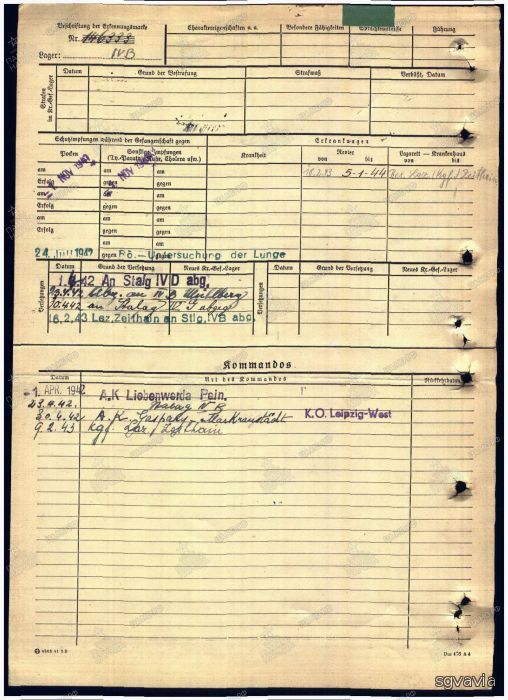 Beschriftung der Erkennungsmarke
Nr. 146333
Lager: IV B
Charaktereigenschaften u. a.
Besondere Fähigkeiten
Sprachkenntnisse
Führung
Strafen im Kr.-Gef.-Lager
Datum
Grund der Bestrafung
Strafmaß
Verbüßt, Datum
Schutzimpfungen während der Gefangenschaft gegen
Erkrankungen
Pocken
Sonstige Impfungen
(Ty.-Paraty., Ruhr, Cholera usw.)
Krankheit
Revier
von bis
Lazarett — Krankenhaus
von bis
am
am
Erfolg
gegen
NOV 1942
NOV 194
16.2.43
5-1-44
Res. Laz. (Kgf.) Zeithain
am
am
Erfolg
gegen
am
am
Erfolg
gegen
am
am
Erfolg
gegen
24. Juli 1942
gegen
Rö.-Untersuchung der Lunge
Versetzungen
Datum
Grund der Versetzung
Neues Kr.-Gef.-Lager
Versetzungen
Datum
Grund der Versetzung
Neues Kr.-Gef.-Lager
1.4.42 An Stalg IV D abg.
23.4.42 Abg. an IV B Mühlberg
30.4.42 an Stalag IV G abgeg
16.2.43 Laz. Zeithain an Stlg. IVB abg.
Kommandos
Datum
Art des Kommandos
Rückkehrdatum
-1. APR. 1942
A.K Liebenwerda Pein.
23.4.42.
Stalag IV B
K.O. Leipzig-West
30.4.42
A. K. Markranstädt
9.2.43
Kgf. Laz. Zeithain
Din 476 A 4
sgvavia